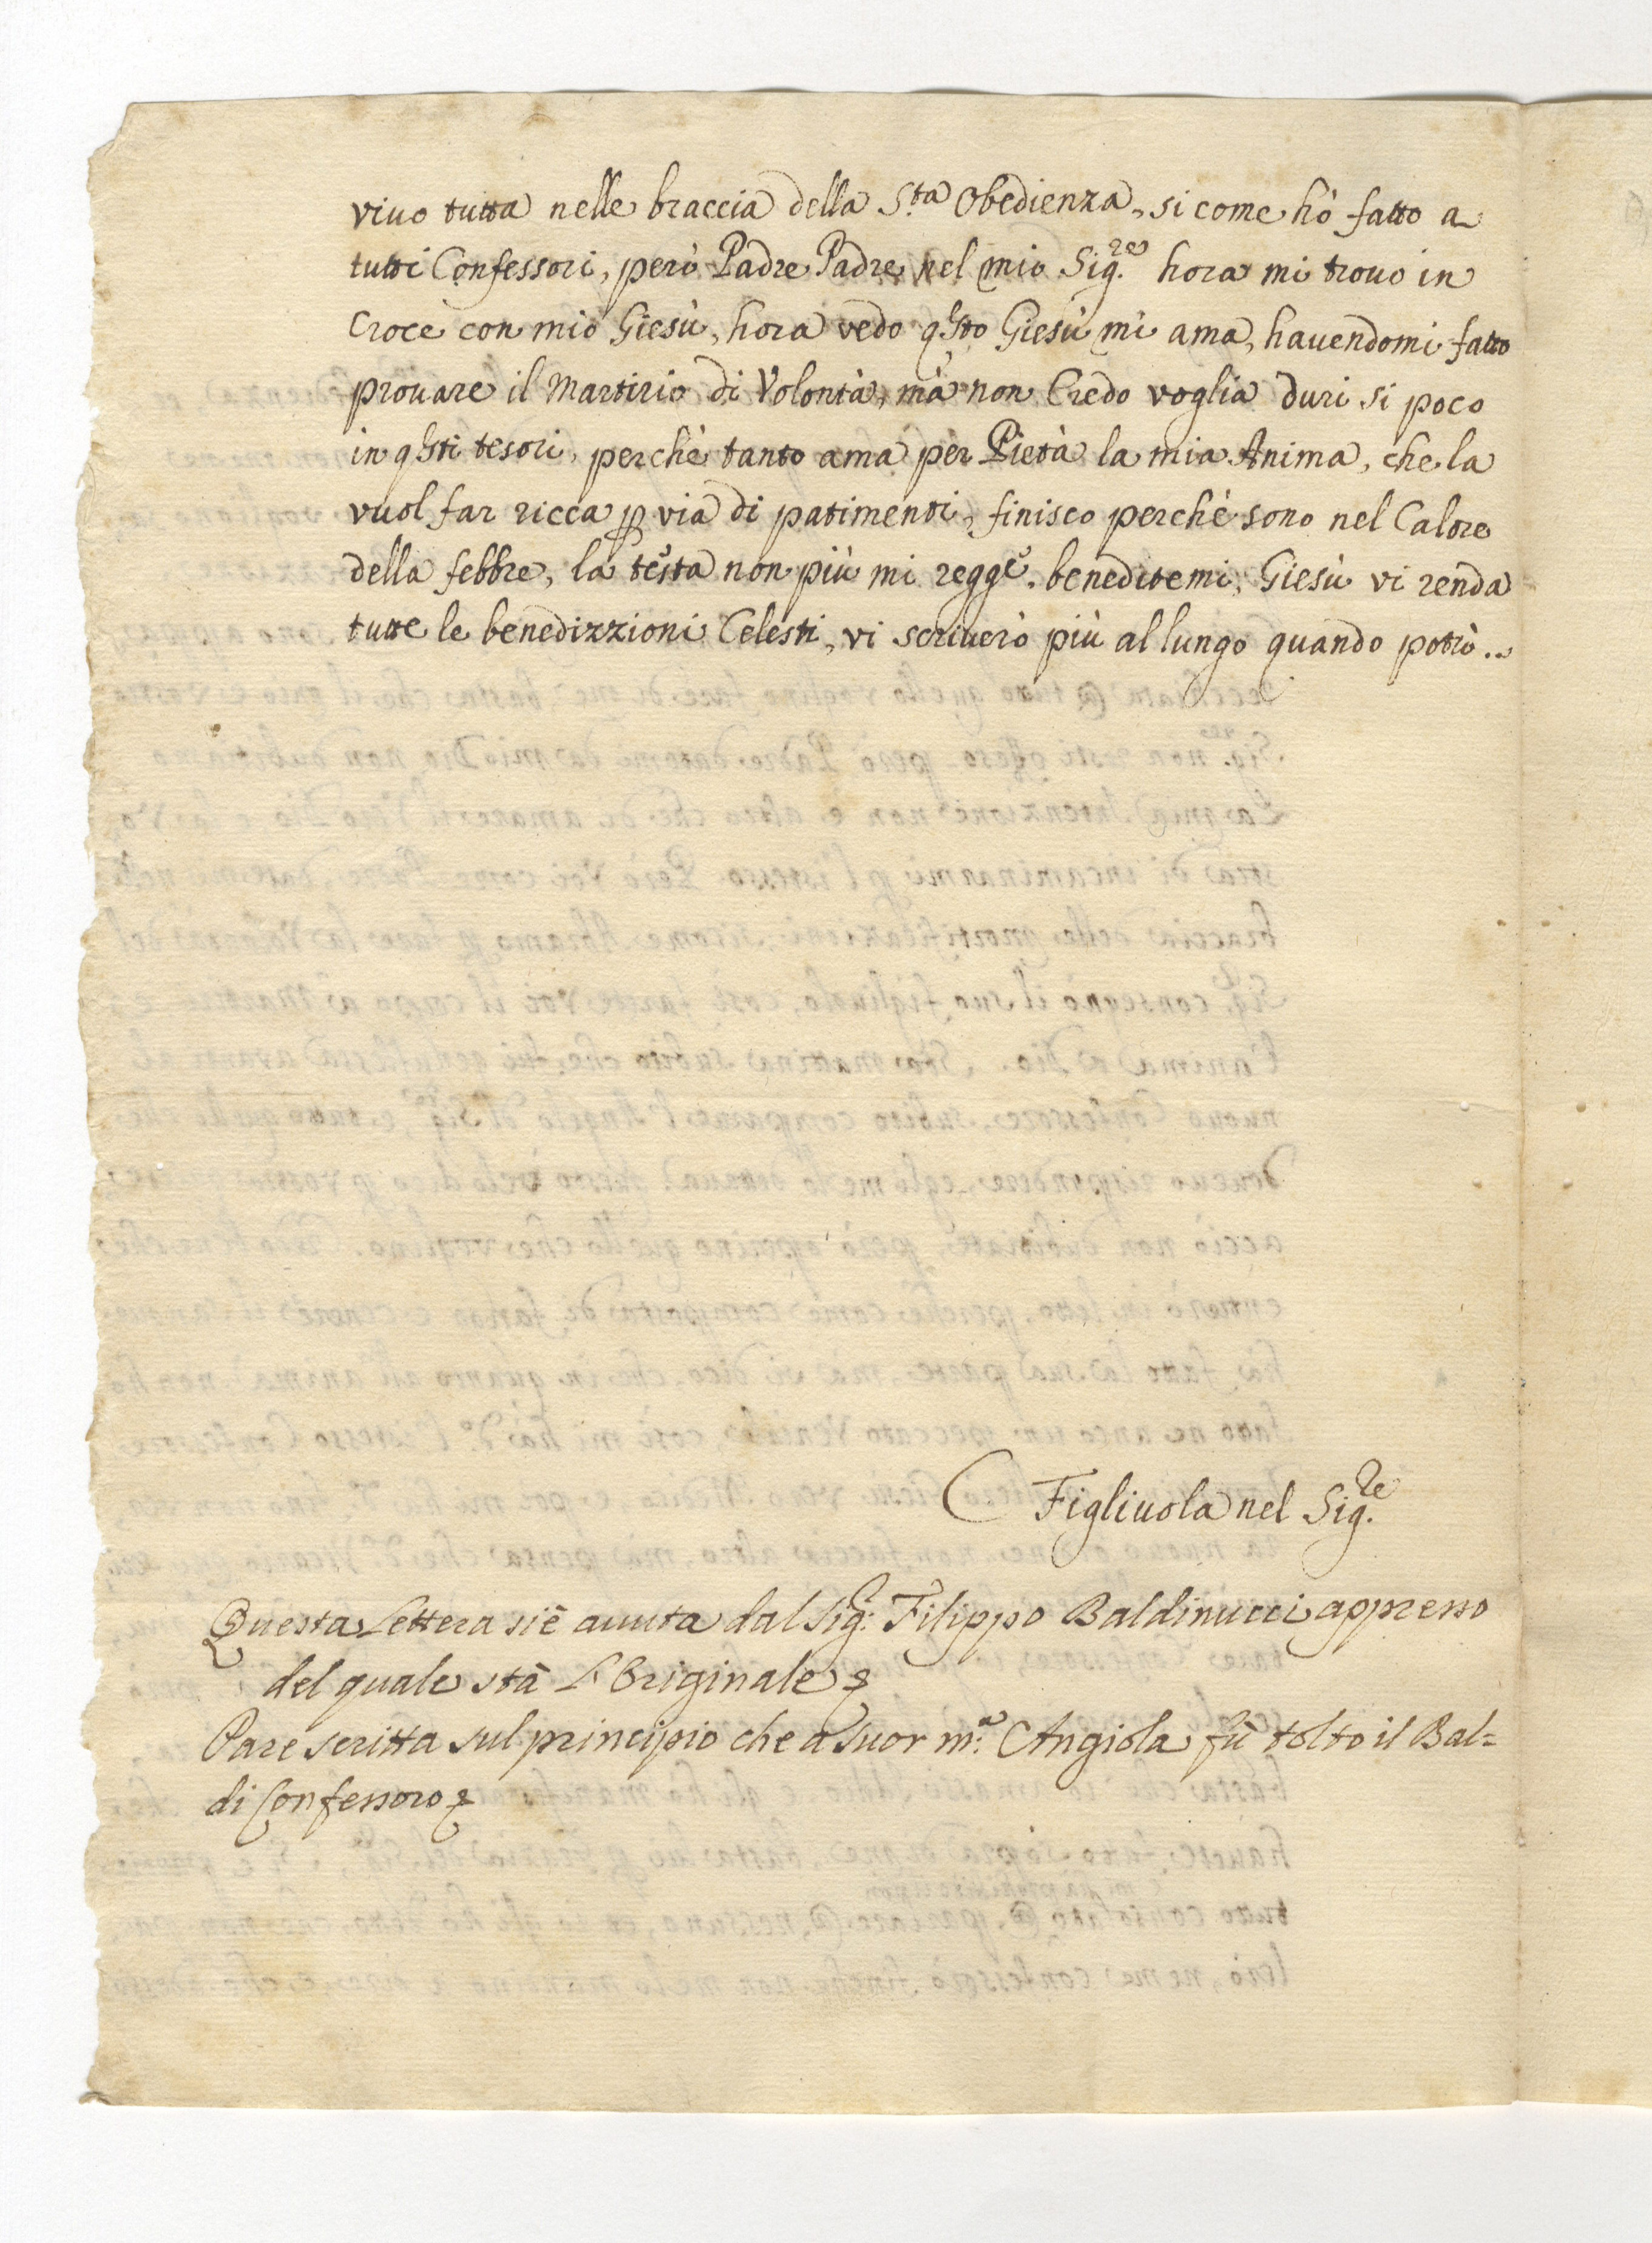 viuo tutta nelle braccia della S.ta Obedienza, si come hò fatto a
tutti Confessori, però Padre Padre nel mio Sig.re hora mi trouo in
Croce con mio Giesù, hora vedo q.sto Giesù mi ama, hauendomi fatto
prouare il Martirio di Volontà, mà non Credo voglia duri si poco
in q.sti tesori, perchè tanto ama per Pietà la mia Anima, che la
vuol far ricca p via di patimenti, finisco perchè sono nel Calore
della febbre, la testa non più mi regge, beneditemi, Giesù vi renda
tutte le benedizzioni Celesti, vi scriuerò più al lungo quando potrò..
Figliuola nel Sig.re
Questa Lettera si è auuta dal Sig.r Filippo Baldinucci appresso
del quale stà l'Originale
Pare scritta sul principio che a Suor m.a Angiola fù tolto il Bal=
di Confessoro